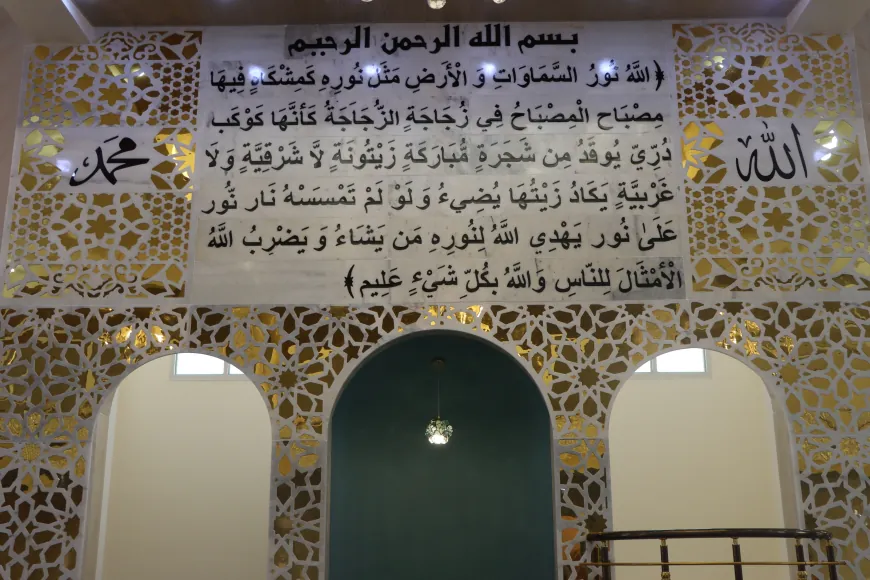 بسم الله الرحمن الرحيم
﴿ اللَّهُ نُورُ السَّمَاوَاتِ وَ الْأَرْضِ مَثَلُ نُورِهِ كَمِشْكَاةٍ فِيهَا
مِصْبَاح الْمِصْبَاحُ فِي زُجَاجَةٍ الزُّجَاجَةُ كَأَنَّهَا كَوْكَب
دُرِّيّ يُوقَدُ مِن شَجَرَةٍ مُّبَارَكَةٍ زَيْتُونَةٍ لَّا شَرْقِيَّةٍ وَلَا
غَرْبِيَّةٍ يَكَادُ زَيْتُهَا يُضِيءُ وَلَوْ لَمْ تَمْسَسْهُ نَار نُّور
عَلَىٰ نُور يَهْدِي اللَّهُ لِنُورِهِ مَن يَشَاءُ وَيَضْرِبُ اللَّهُ
الْأَمْثَالَ لِلنَّاسِ وَاللَّهُ بِكُلِّ شَيْءٍ عَلِيم ﴾
الله
محمد